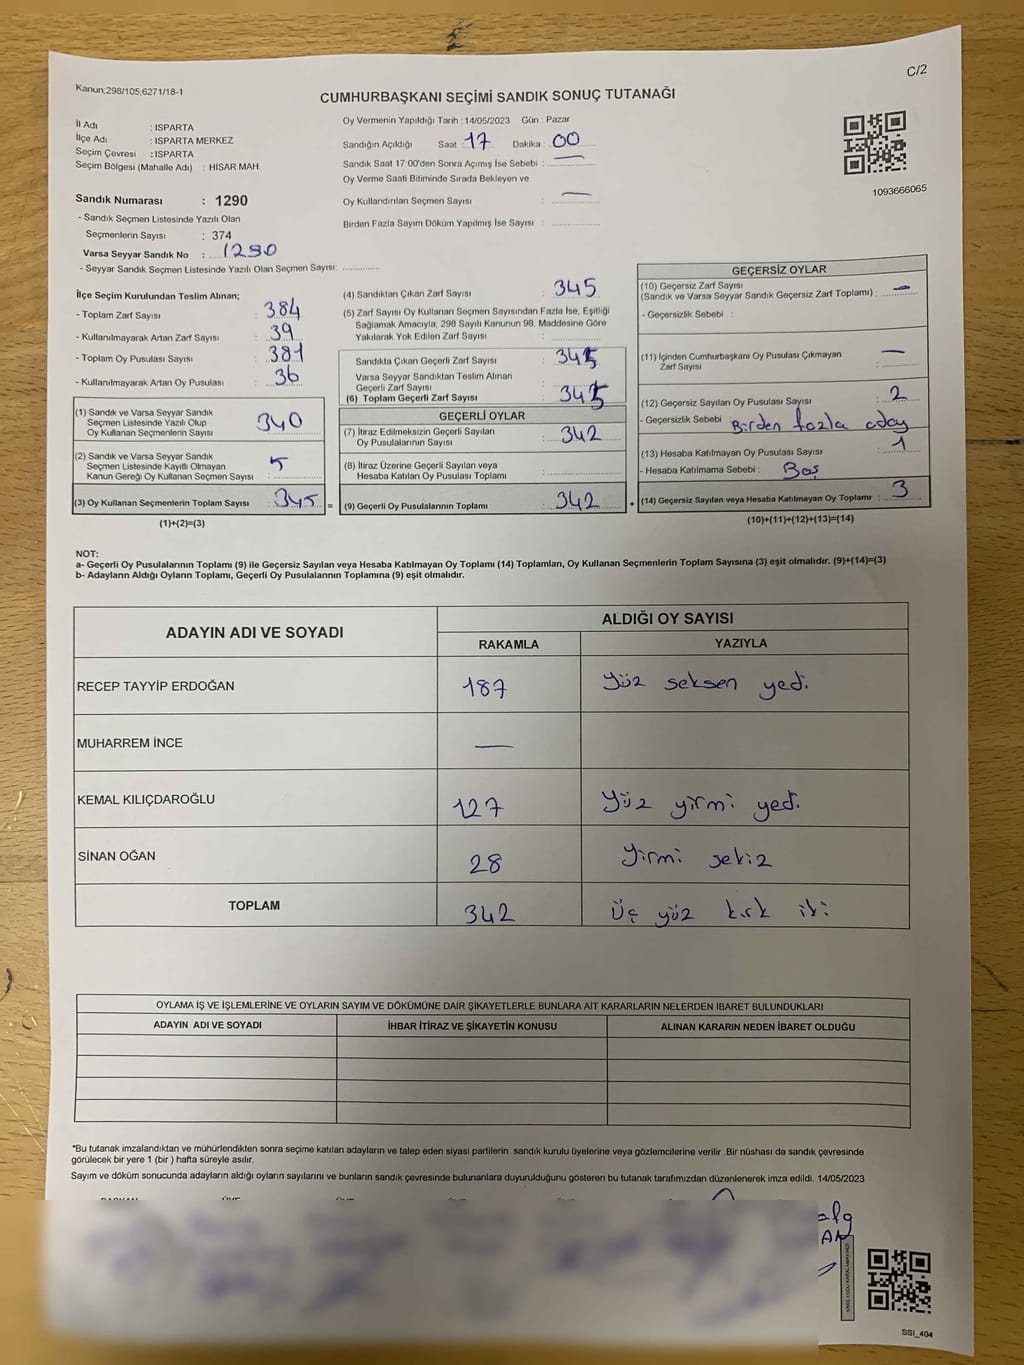 C/2
Kanun;298/105;6271/18-1
CUMHURBAŞKANI SEÇİMİ SANDIK SONUÇ TUTANAĞI
1093666065
İl Adı : ISPARTA
İlçe Adı : ISPARTA MERKEZ
Seçim Çevresi : ISPARTA
Seçim Bölgesi (Mahalle Adı) : HİSAR MAH.
Sandık Numarası : 1290
- Sandık Seçmen Listesinde Yazılı Olan
Seçmenlerin Sayısı : 374
Varsa Seyyar Sandık No : 1290
- Seyyar Sandık Seçmen Listesinde Yazılı Olan Seçmen Sayısı:
Oy Vermenin Yapıldığı Tarih : 14/05/2023 Gün : Pazar
Sandığın Açıldığı Saat : 17 Dakika : 00
Sandık Saat 17:00'den Sonra Açımış İse Sebebi : —
Oy Verme Saati Bitiminde Sırada Bekleyen ve
Oy Kullandırılan Seçmen Sayısı : —
Birden Fazla Sayım Döküm Yapılmış İse Sayısı :
İlçe Seçim Kurulundan Teslim Alınan;
- Toplam Zarf Sayısı : 384
- Kullanılmayarak Artan Zarf Sayısı : 39
- Toplam Oy Pusulası Sayısı : 381
- Kullanılmayarak Artan Oy Pusulası : 36
(1) Sandık ve Varsa Seyyar Sandık
Seçmen Listesinde Yazılı Olup
Oy Kullanan Seçmenlerin Sayısı : 340
(2) Sandık ve Varsa Seyyar Sandık
Seçmen Listesinde Kayıtlı Olmayan
Kanun Gereği Oy Kullanan Seçmen Sayısı : 5
(3) Oy Kullanan Seçmenlerin Toplam Sayısı : 345 =
(1)+(2)=(3)
(4) Sandıktan Çıkan Zarf Sayısı : 345
(5) Zarf Sayısı Oy Kullanan Seçmen Sayısından Fazla İse, Eşitliği
Sağlamak Amacıyla, 298 Sayılı Kanunun 98. Maddesine Göre
Yakılarak Yok Edilen Zarf Sayısı :
Sandıkta Çıkan Geçerli Zarf Sayısı : 345
Varsa Seyyar Sandıktan Teslim Alınan
Geçerli Zarf Sayısı :
(6) Toplam Geçerli Zarf Sayısı : 345
GEÇERLİ OYLAR
(7) İtiraz Edilmeksizin Geçerli Sayılan
Oy Pusulalarının Sayısı : 342
(8) İtiraz Üzerine Geçerli Sayılan veya
Hesaba Katılan Oy Pusulası Toplamı :
(9) Geçerli Oy Pusulalarının Toplamı : 342 +
GEÇERSİZ OYLAR
(10) Geçersiz Zarf Sayısı
(Sandık ve Varsa Seyyar Sandık Geçersiz Zarf Toplamı) : —
- Geçersizlik Sebebi :
(11) İçinden Cumhurbaşkanı Oy Pusulası Çıkmayan
Zarf Sayısı : —
(12) Geçersiz Sayılan Oy Pusulası Sayısı : 2
- Geçersizlik Sebebi : Birden fazla aday
(13) Hesaba Katılmayan Oy Pusulası Sayısı : 1
- Hesaba Katılmama Sebebi : Boş
(14) Geçersiz Sayılan veya Hesaba Katılmayan Oy Toplamı : 3
(10)+(11)+(12)+(13)=(14)
NOT:
a- Geçerli Oy Pusulalarının Toplamı (9) ile Geçersiz Sayılan veya Hesaba Katılmayan Oy Toplamı (14) Toplamları, Oy Kullanan Seçmenlerin Toplam Sayısına (3) eşit olmalıdır. (9)+(14)=(3)
b- Adayların Aldığı Oyların Toplamı, Geçerli Oy Pusulalarının Toplamına (9) eşit olmalıdır.
ADAYIN ADI VE SOYADI
ALDIĞI OY SAYISI
RAKAMLA YAZIYLA
RECEP TAYYİP ERDOĞAN 187 Yüz seksen yedi
MUHARREM İNCE —
KEMAL KILIÇDAROĞLU 127 Yüz yirmi yedi
SİNAN OĞAN 28 Yirmi sekiz
TOPLAM 342 Üç yüz kırk iki
OYLAMA İŞ VE İŞLEMLERİNE VE OYLARIN SAYIM VE DÖKÜMÜNE DAİR ŞİKAYETLERLE BUNLARA AİT KARARLARIN NELERDEN İBARET BULUNDUKLARI
ADAYIN ADI VE SOYADI İHBAR İTİRAZ VE ŞİKAYETİN KONUSU ALINAN KARARIN NEDEN İBARET OLDUĞU
*Bu tutanak imzalandıktan ve mühürlendikten sonra seçime katılan adayların ve talep eden siyasi partilerin sandık kurulu üyelerine veya gözlemcilerine verilir .Bir nüshası da sandık çevresinde
görülecek bir yere 1 (bir ) hafta süreyle asılır.
Sayım ve döküm sonucunda adayların aldığı oyların sayılarını ve bunların sandık çevresinde bulunanlara duyurulduğunu gösteren bu tutanak tarafımızdan düzenlenerek imza edildi. 14/05/2023
SSI_404